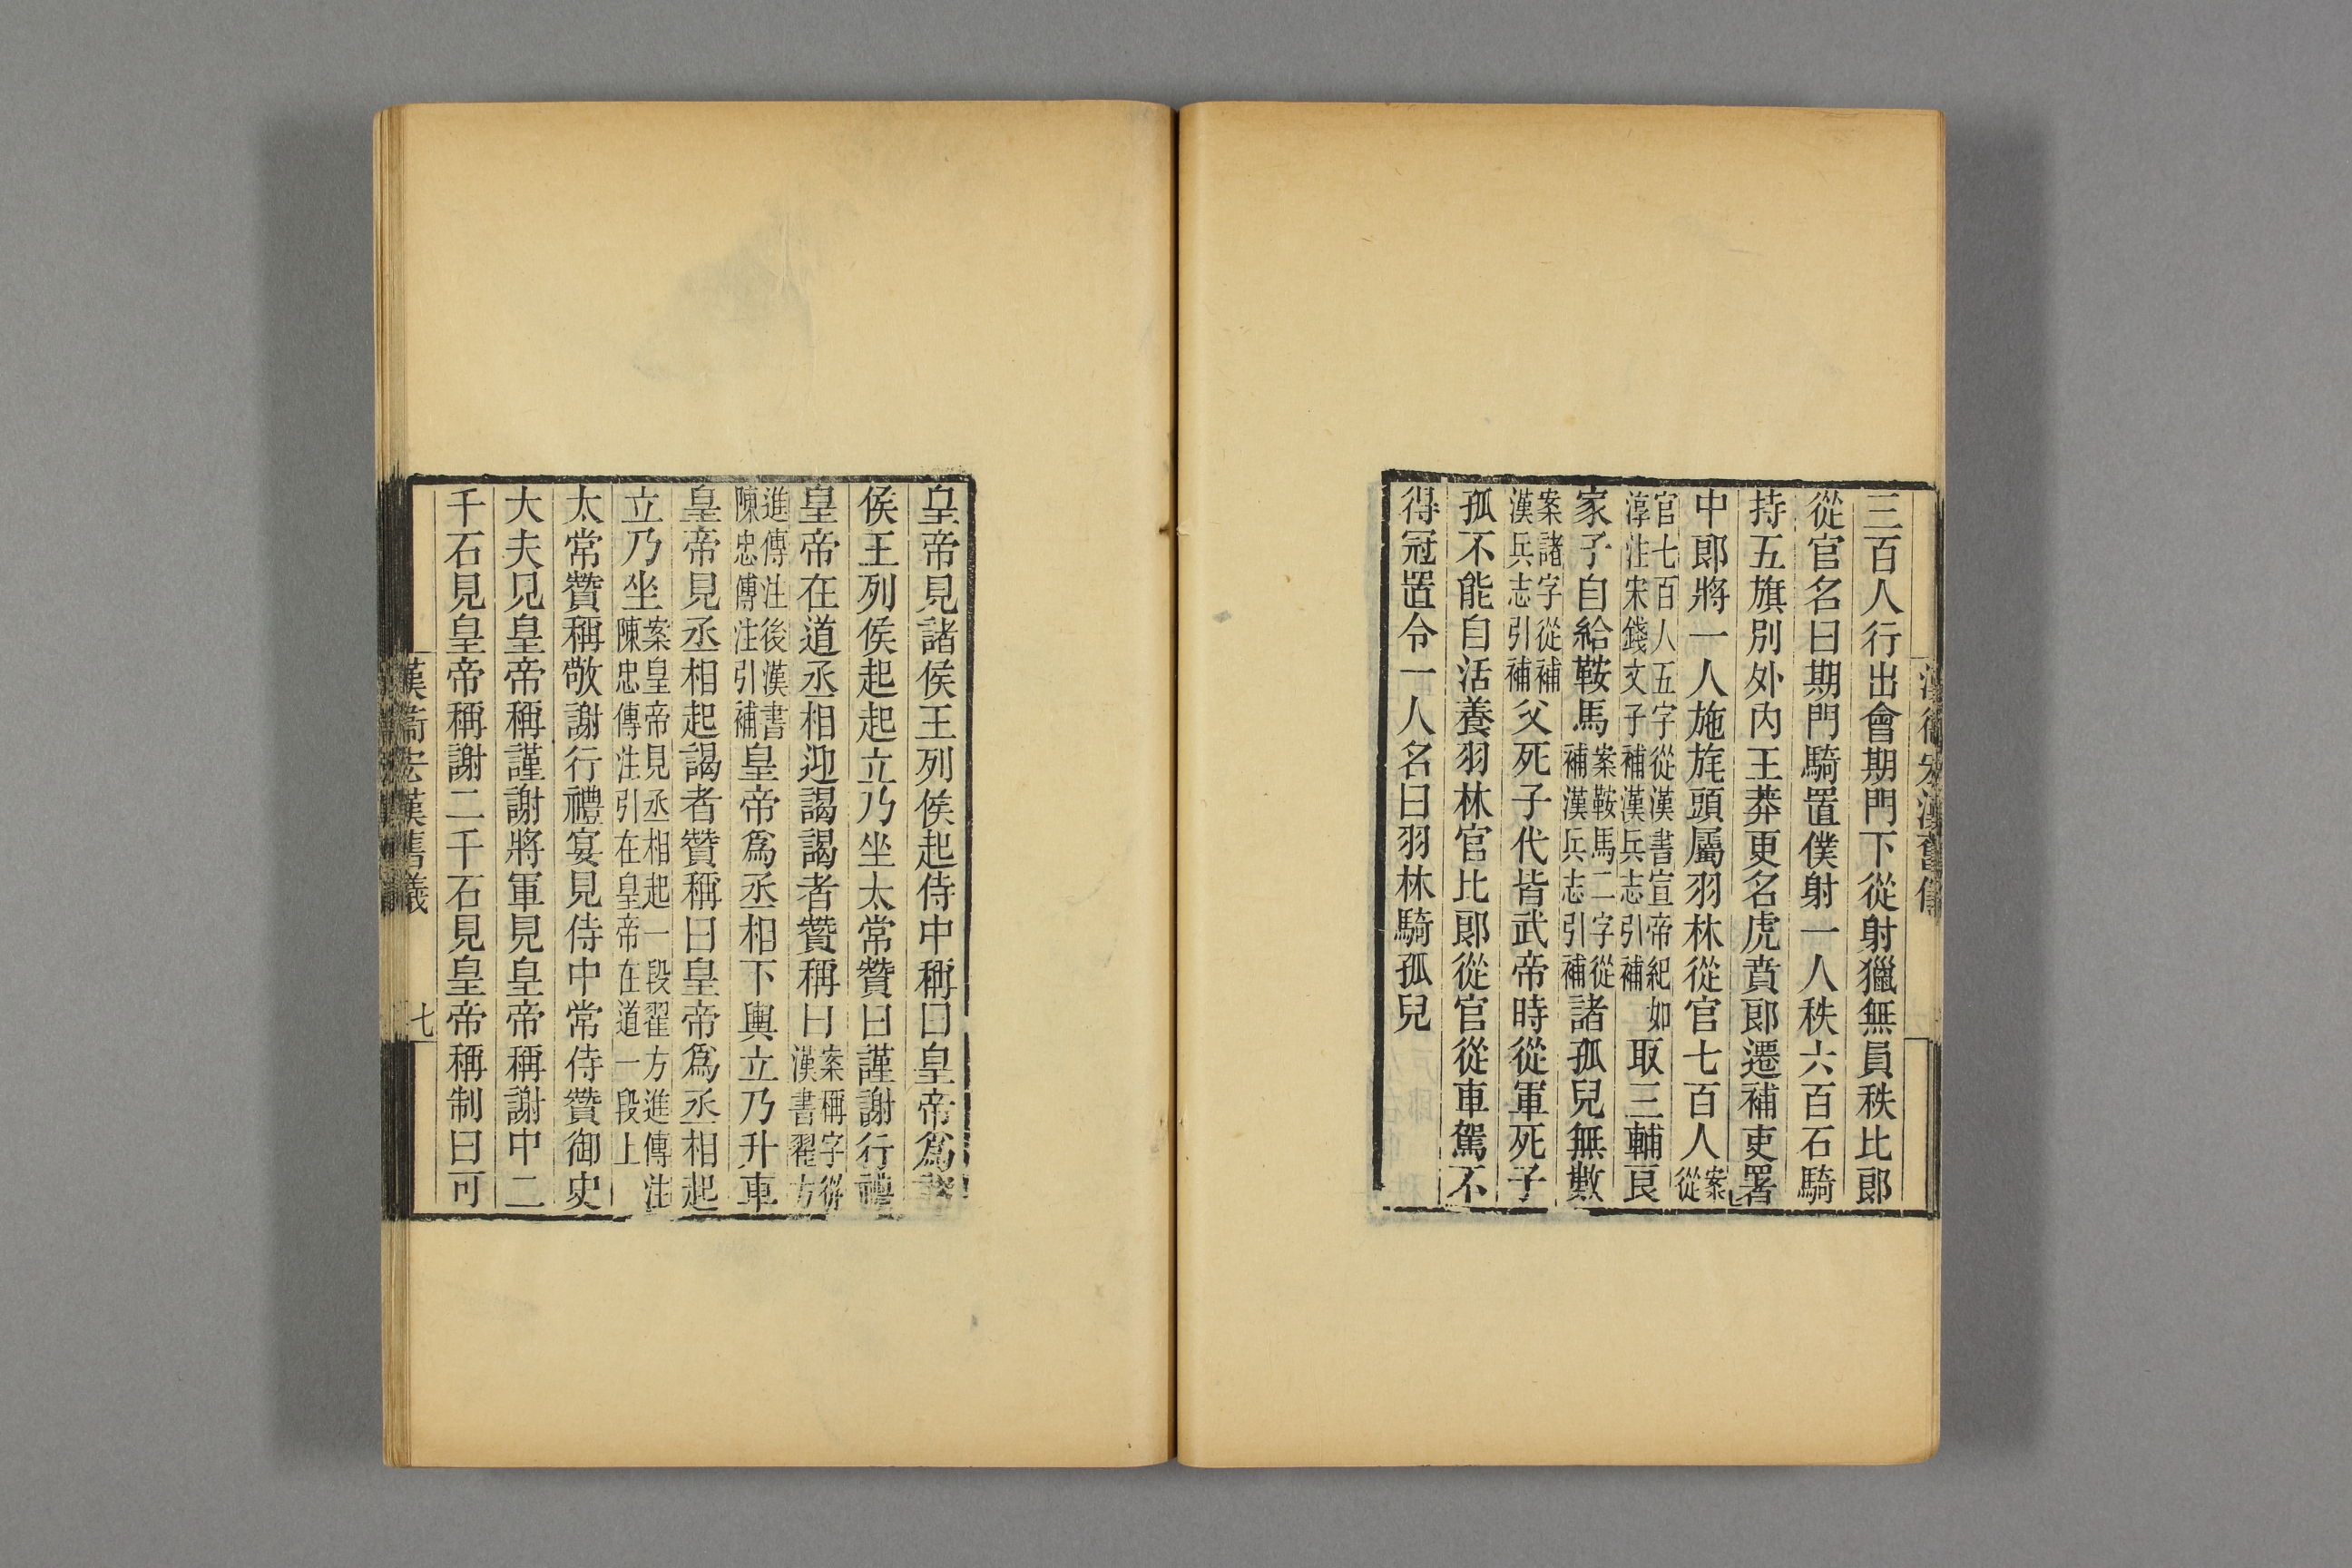 三百人行出會期門下從射獵無員秩比郞
從官名曰期門騎置僕射一人秩六百石騎
持五旗別外內王莽更名虎賁郞遷補吏署
中郞將一人施旄頭屬羽林從官七百人案從
官七百人五字從漢書宣帝紀如
淳注宋錢文子補漢兵志引補
取三輔良
家子自給鞍馬
案鞍馬二字從
補漢兵志引補
諸孤兒無數
案諸字從補
漢兵志引補
父死子代皆武帝時從軍死子
孤不能自活養羽林官比郞從官從車駕不
得冠置令一人名曰羽林騎孤兒
皇帝見諸侯王列侯起侍中稱曰皇帝爲
侯王列侯起起立乃坐太常贊曰謹謝行禮
皇帝在道丞相迎謁謁者贊稱曰
案稱字從
漢書翟方
進傳注後漢書
陳忠傳注引補
皇帝爲丞相下輿立乃升車
皇帝見丞相起謁者贊稱曰皇帝爲丞相起
立乃坐
案皇帝見丞相起一段翟方進傳注
陳忠傳注引在皇帝在道一段上
太常贊稱敬謝行禮宴見侍中常侍贊御史
大夫見皇帝稱謹謝將軍見皇帝稱謝中二
千石見皇帝稱謝二千石見皇帝稱制曰可
漢衞宏漢舊儀
七